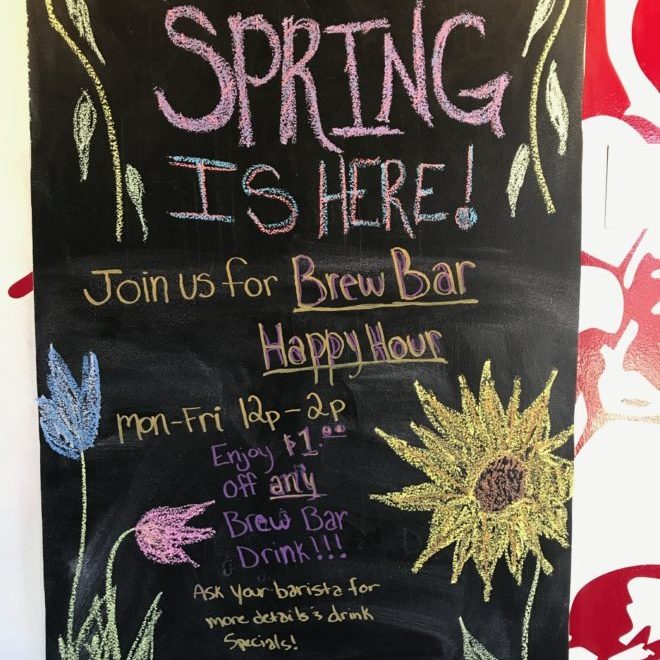 SPRING
IS HERE!
Join us for Brew Bar
Happy Hour
Mon-Fri 12p-2p
Enjoy $1.00
off any
Brew Bar
Drink!!!
Ask your barista for
more details & drink
Specials!